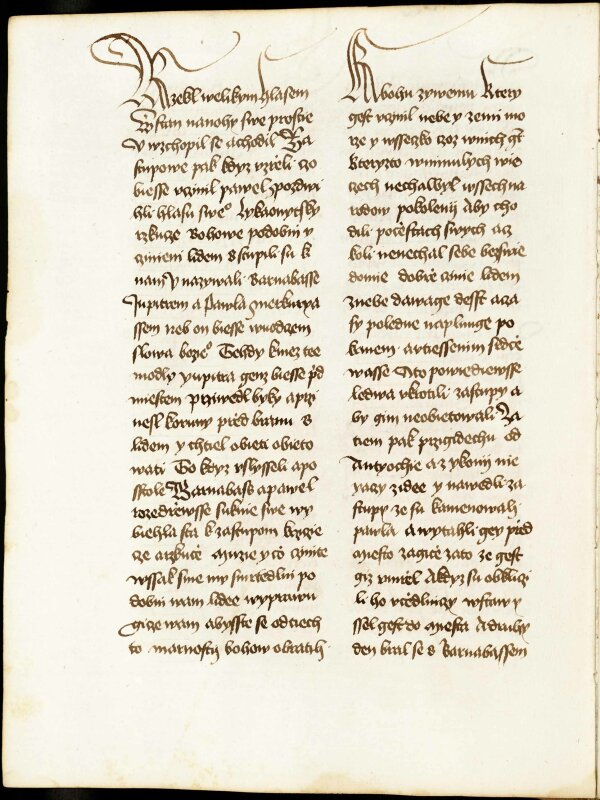 Rzekl welikym hlasem
Wstan nanohy swe prostie
y wzchopil se achodil Za
stupowe pak kdyz vzreli czo
biesse vczinil pawel zpozdwi
hli hlasu sweº Lykaonytsky
rzkucze Bohowe podobni v
czinieni lidem Sstupili su k
nam y nazywali Barnabasse
Jupitrem a Pawla merkurya
ssem neb on biesse wuodcem
slowa bozieº Tehdy kniez tee
modly yupitra genz biesse pd
miestem prziwedl byky a przi
nesl koruny przed branu s
lidem y chtiel obieti obieto
wati To kdyz vslysseli apo
sstole Barnabass a pawel
rozedrewsse suknie swe wy
biehla sta k zastupom krzicie
cze arzkucze Muzie y co czinite
wssak sme my smrtedlni po
dobni wam lidee wyprawu
gicze wam abysste se odtiech
to marnosti bohow obratili
K bohu zywemu Ktery
gest vczinil nebe y zemi mo
rze y wsseczko czoz wnich gt
kteryzto wminulych wie
czech nechalbyl wssechna
rodow pokolenij Aby cho
dili pocestach swych acz
koli nenechal sebe beswie
domie dobrze czinie lidem
znebe dawage desst a cza
sy poledne naplnuge po
krmem a wtiessenim srdcze
wasse A to powiediewsse
ledwa vkotili zastupy a
by gim neobietowali Za
tiem pak przigidechu od
Antyochie a z ykonij nie
yaczy zidee y nawedli za
stupy ze su kamenowali
pawla A wytahli gey przed
miesto magicze zato ze gest
giz vmrel A kdyz su obkliczi
li ho vczedlniczy wstaw y
ssel gest do miesta A druhy
den bral se s Barnabassem